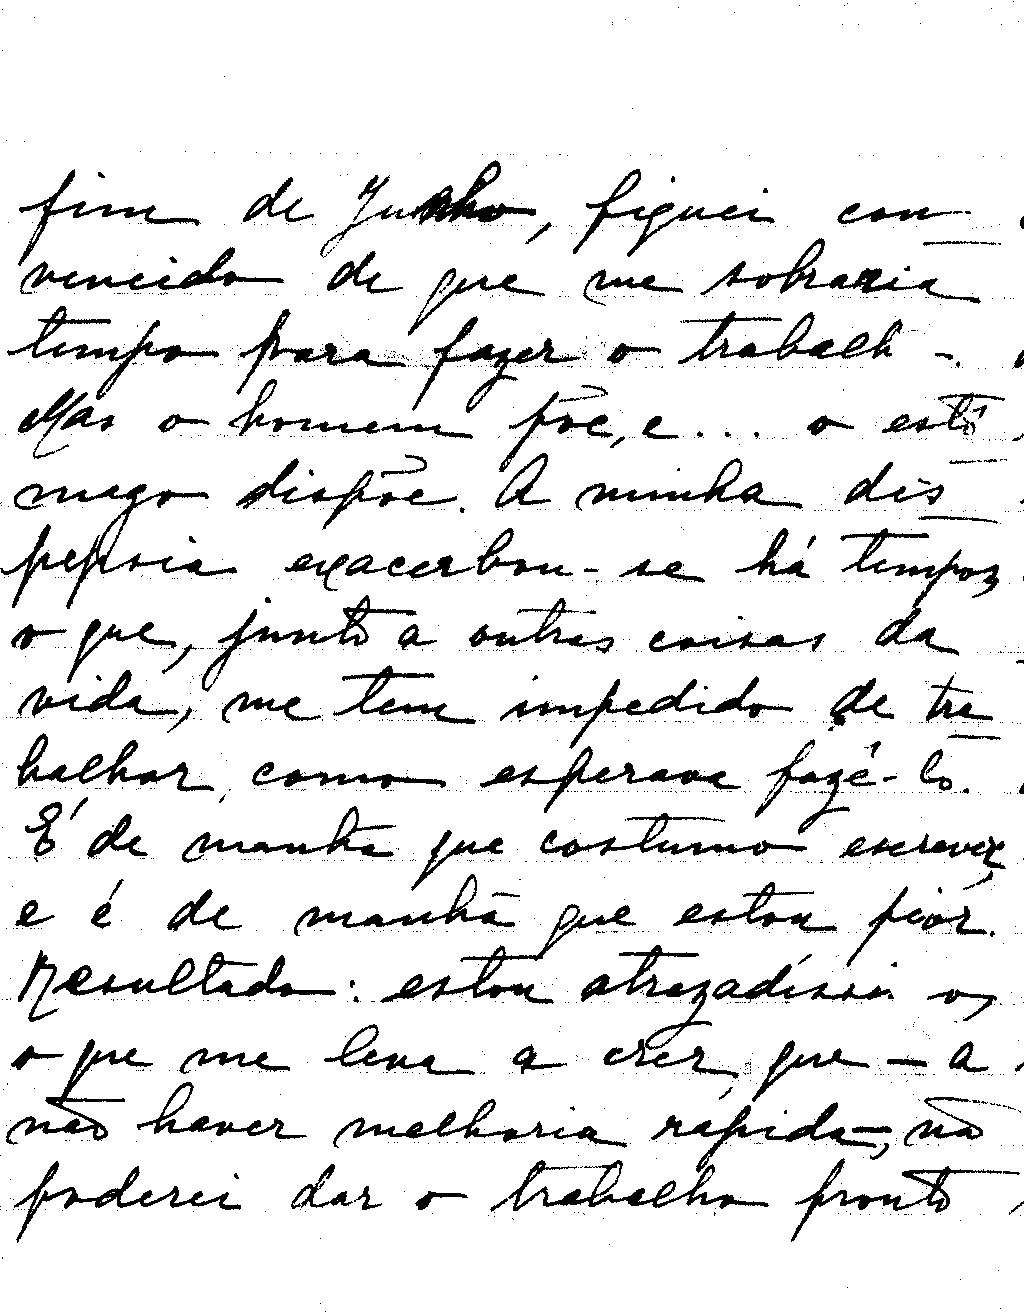 fim de Junho, fiquei con
vencido de que me sobraria
tempo para fazer o trabalh.
Mas o homem põe, e... o estô
mago dispõe. A minha dis
pepsia exacerbou-se há tempos,
o que, junto a outras coisas da
vida, me tem impedido de tra
balhar, como esperava fazê-lo.
É de manhã que costumo escrever,
e é de manhã que estou piór.
Resultado: estou atrazadíssi o,
o que me leva a crer, que — a
não haver melhoria rápida —, não
poderei dar o trabalho pronto